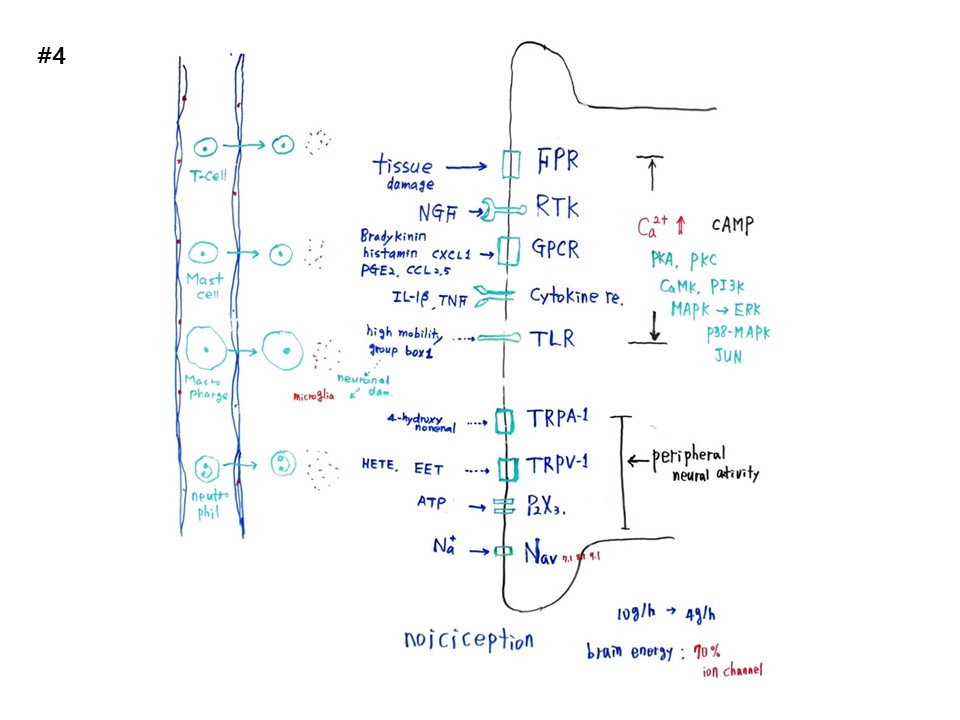 #4
T-Cell
Mast
cell
Macro
pharge
neutro
phil
tissue
damage
FPR
NGF
RTK
Bradykinin
histamin CXCL1
PGE2, CCL2,5
GPCR
IL-1β, TNF
Cytokine re.
high mobility
group box1
TLR
neuronal
dam.
microglia
4-hydroxy
nonenal
TRPA-1
HETE, EET
TRPV-1
ATP
P2X3.
Na+
Nav
Ca2+ ↑ cAMP
PKA, PKC
CaMK, PI3K
MAPK → ERK
p38-MAPK
JUN
peripheral
neural ativity
noiciception
10g/h → 4g/h
brain energy : 70%
ion channel